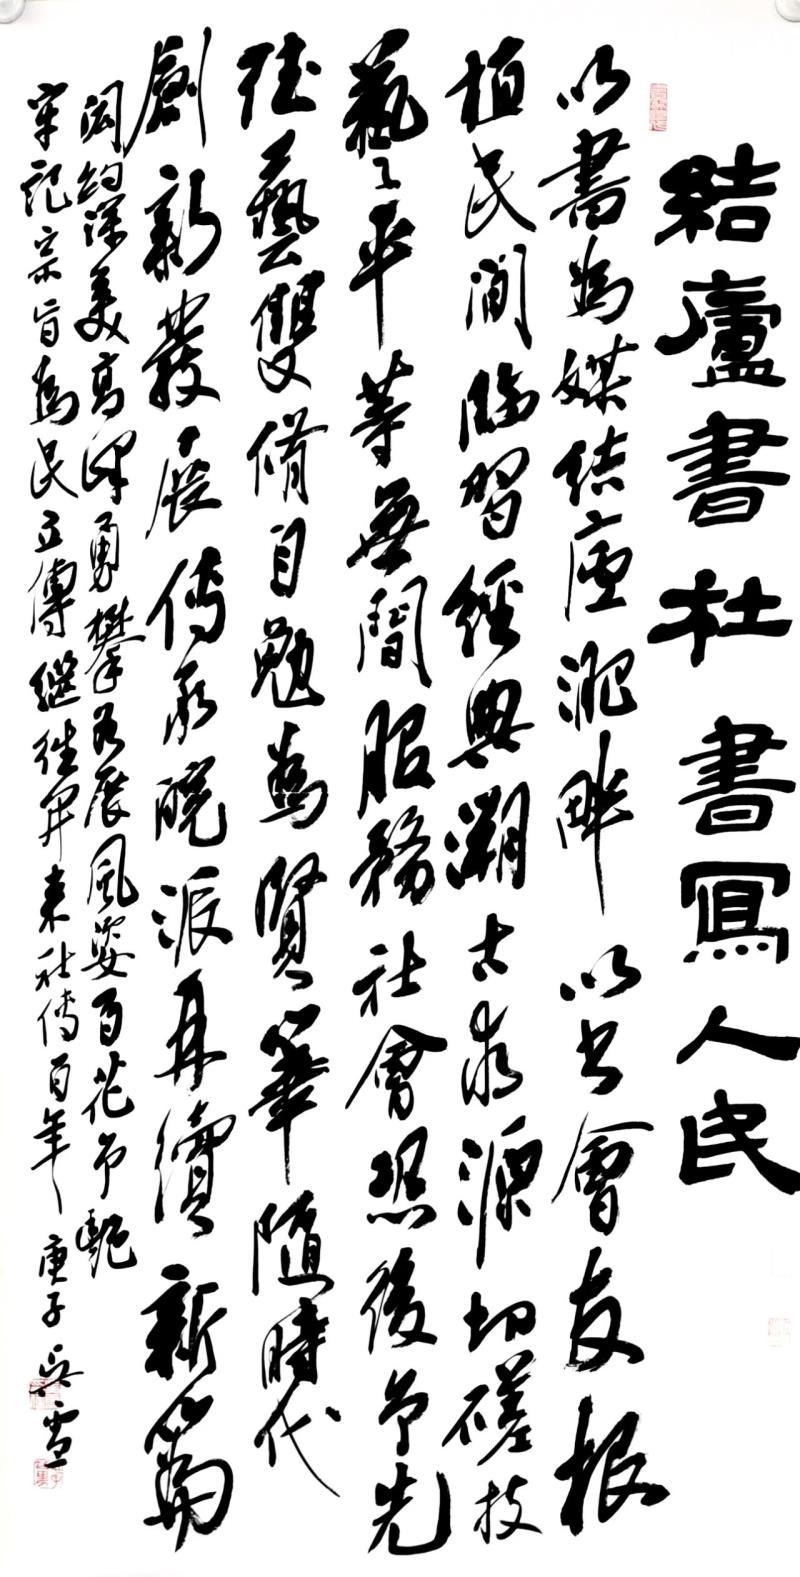 結廬書社書寫人民
以書為媒結廬淝畔以书會友根
植民間臨習經典溯古求源切磋技
藝々平等無間服務社會恐後争先
德藝雙脩自勉為賢筆隨時代
創新發展傳承皖派再續新篇
閎約深美高峰勇攀各展風姿百花争艷
牢記宗旨為民立傳繼往開來社傳百年庚子吳雪